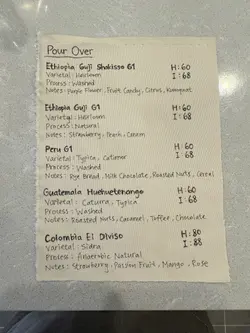 Pour Over
Ethiopia Guji Shakisso G1 H:60
Varietal: Heirloom I:68
Process: Washed
Notes: Purple Flower, Fruit Candy, Citrus, Kumquat
Ethiopia Guji G1 H:60
Varietal: Heirloom I:68
Process: Natural
Notes: Strawberry, Peach, Cream
Peru G1 H:60
Varietal: Typica, Catimor I:68
Process: Washed
Notes: Rye Bread, Milk Chocolate, Roasted Nuts, Cereal
Guatemala Huehuetenango H:60
Varietal: Caturra, Typica I:68
Process: Washed
Notes: Roasted Nuts, Caramel, Toffee, Chocolate
Colombia El Diviso H:80
Varietal: Sidra I:88
Process: Anaerobic Natural
Notes: Strawberry, Passion Fruit, Mango, Rose